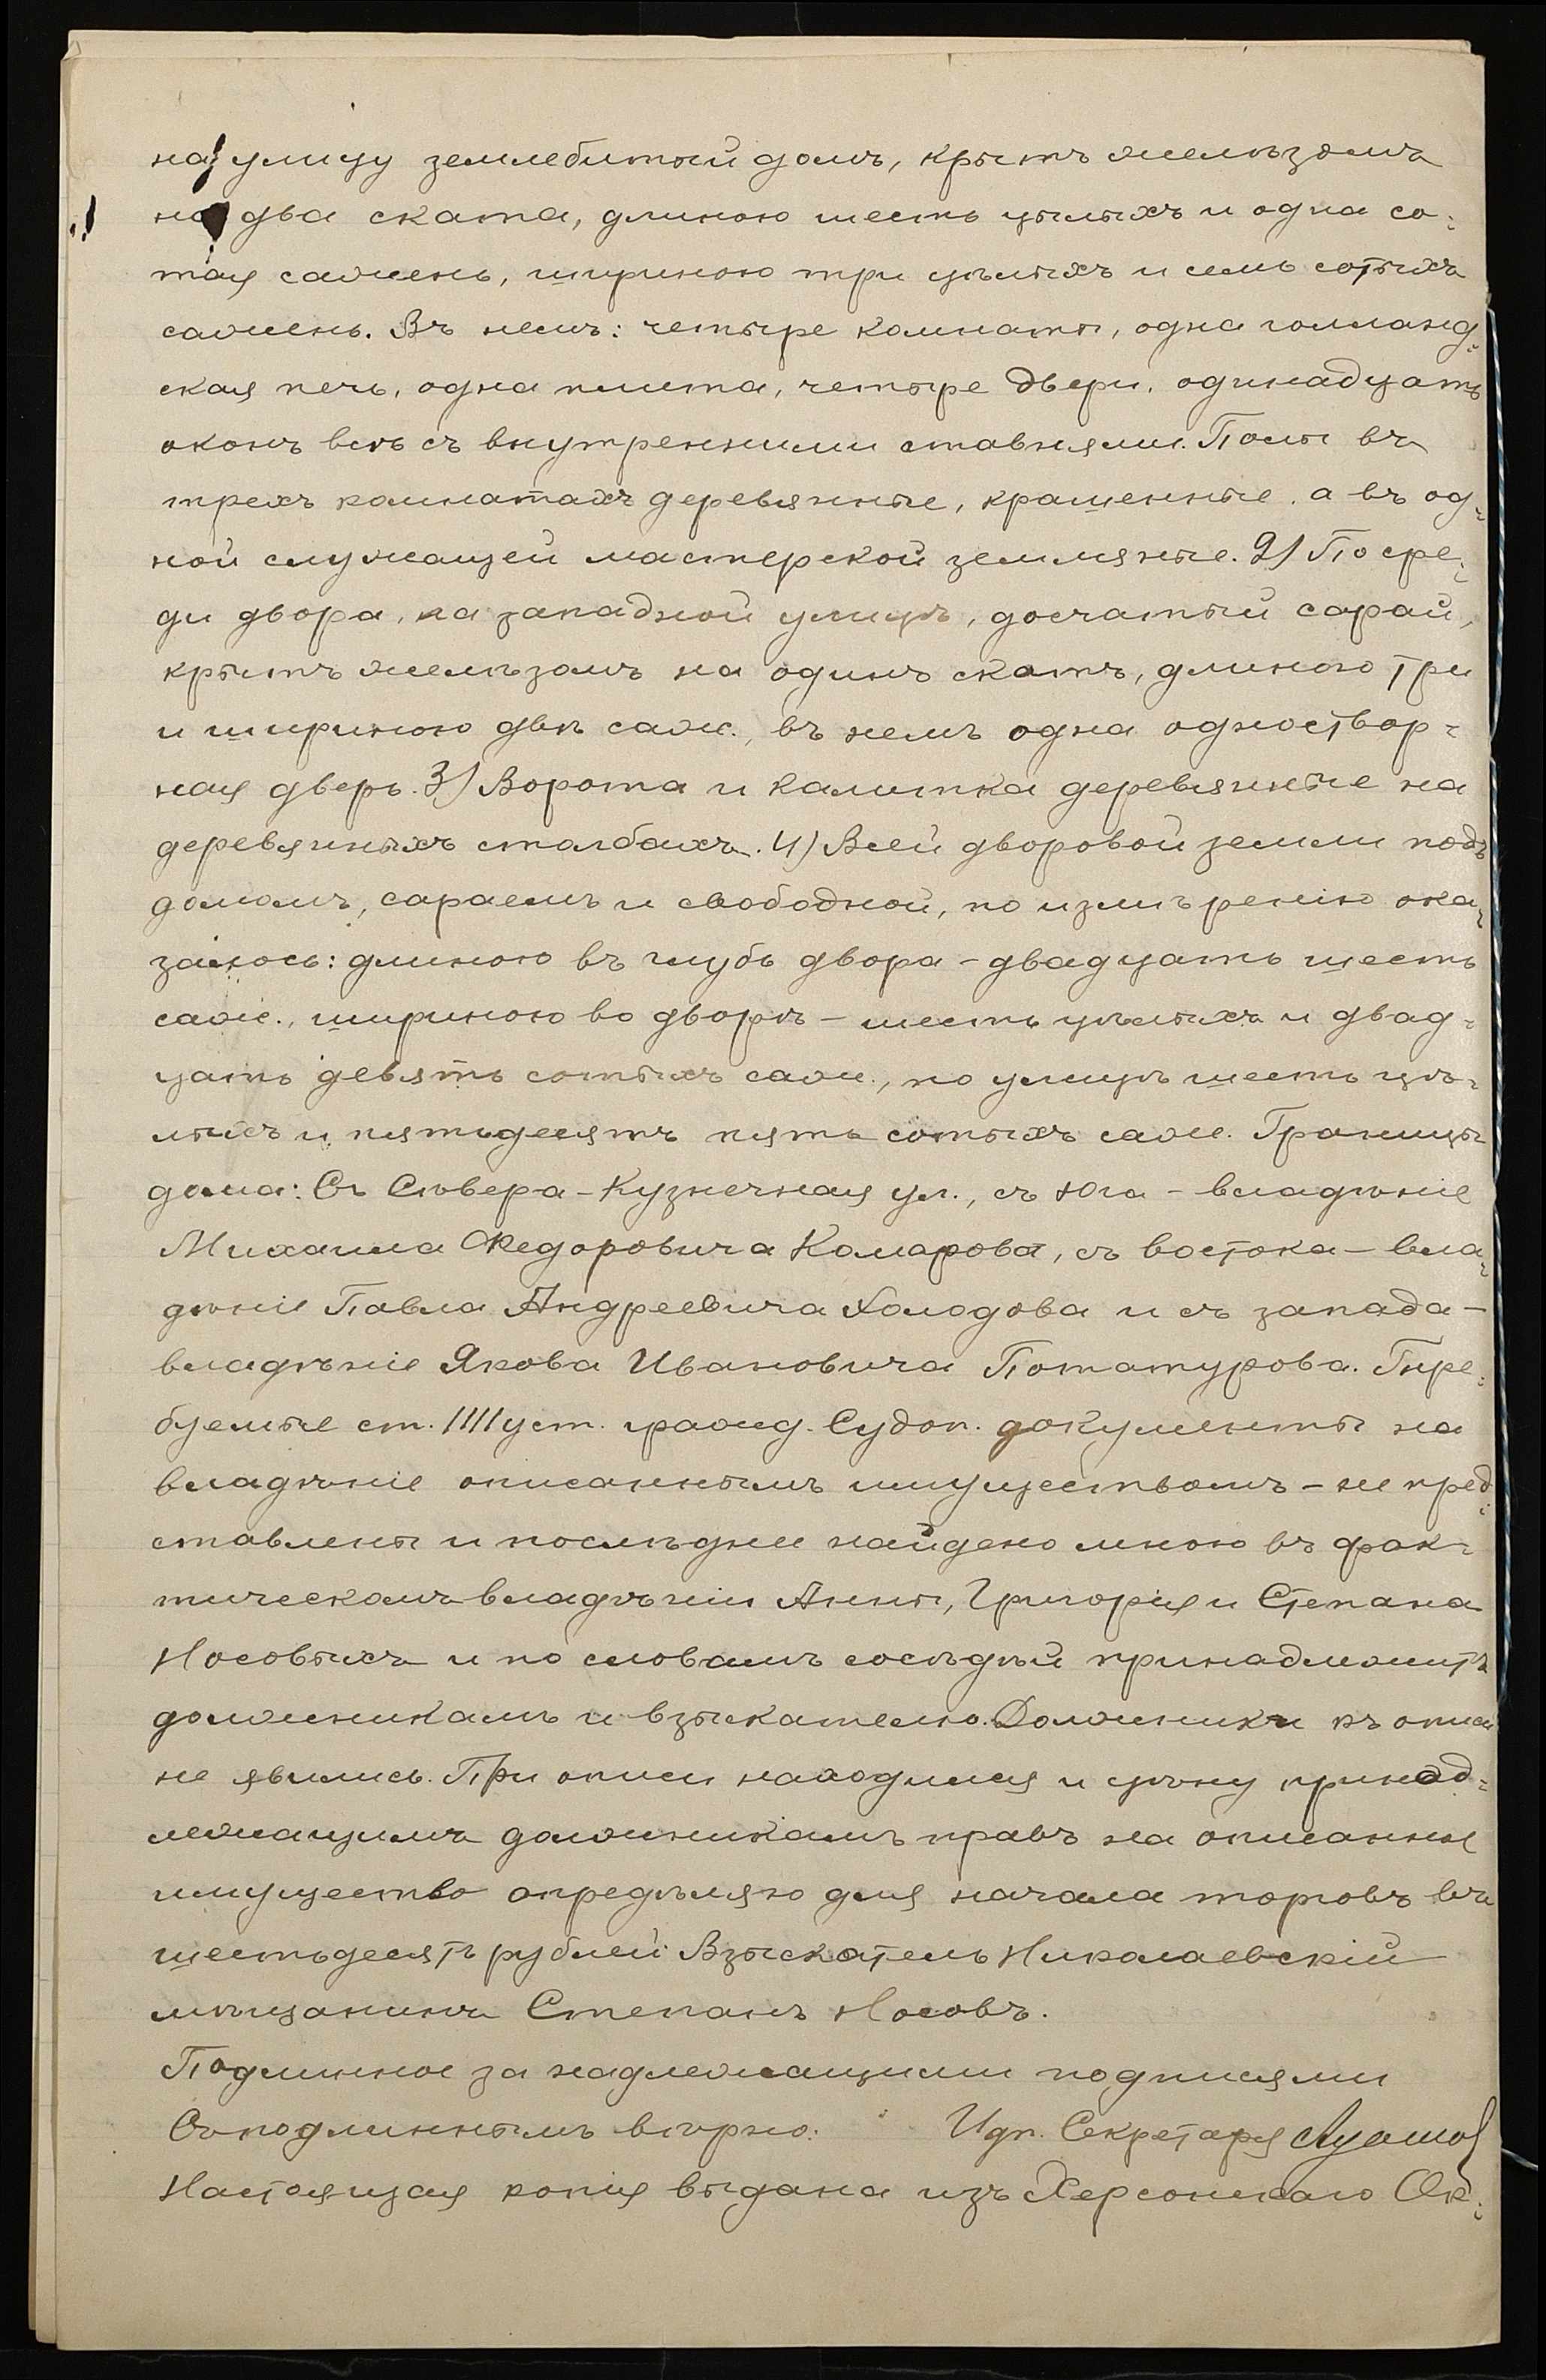 на улицу землебитный домъ, крытъ желѣзомъ
на два ската, длиною шесть цѣлыхъ и одна со-
тая сажень, шириною три цѣлыхъ и семь сотыхъ
сажень. Въ немъ: четыре комнаты, одна голланд-
ская печь, одна плита, четыре двери, одинадцать
оконъ всѣ съ внутренними ставнями. Полы въ
трехъ комнатахъ деревянные, крашенные, а въ од-
ной служащей мастерской земляные. 2) По сре-
ди двора, на западной улицѣ, досчатый сарай,
крытъ желѣзомъ на одинъ скатъ, длиною три
и шириною двѣ саж., въ немъ одна одноствор-
ная дверь. 3) Ворота и калитка деревянные на
деревянныхъ столбахъ. 4) Всей дворовой земли подъ
домомъ, сараемъ и свободной, по измѣренію ока-
залось: длиною въ глубь двора - двадцать шесть
саж., шириною во дворѣ - шесть цѣлыхъ и двад-
цать девять сотыхъ саж., по улицѣ шесть цѣ-
лыхъ и пятьдесятъ пять сотыхъ саж. Границы
дома: Съ Сѣвера - Кузнечная ул., съ Юга - владѣніе
Михаила Федоровича Комарова, съ востока - вла-
дѣніе Павла Андреевича Холодова и съ запада -
владѣніе Якова Ивановича Потатурова. Тре-
буемые ст. 1111 уст. гражд. Судоп. документы на
владѣніе описаннымъ имуществомъ - не пред-
ставлены и послѣднее найдено мною въ фак-
тическомъ владѣніи Анны, Григорія и Степана
Носовыхъ и по словамъ сосѣдѣй принадлежитъ
должникамъ и взыскателю. Должники къ описи
не явились. При описи находился и цѣну принад-
лежащимъ должникамъ правъ на описанное
имущество опредѣляю для начала торговъ въ
шестьдесятъ рублей. Взыскатель Николаевскій
мѣщанинъ Степанъ Носовъ.
Подлинное за надлежащими подписями
Съ подлиннымъ вѣрно: Идп. Секретаря
Настоящая копія выдана изъ Херсонскаго Ок-